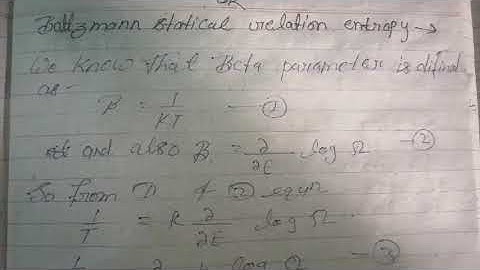 OR
Boltzmann statical relation entropy →
We know that Beta parameter is difind
as -
β = 1/KT — ①
and also β = ∂/∂E log Ω — ②
So from ① & ② equn
1/T = K ∂/∂E log Ω
∂ log Ω — ③